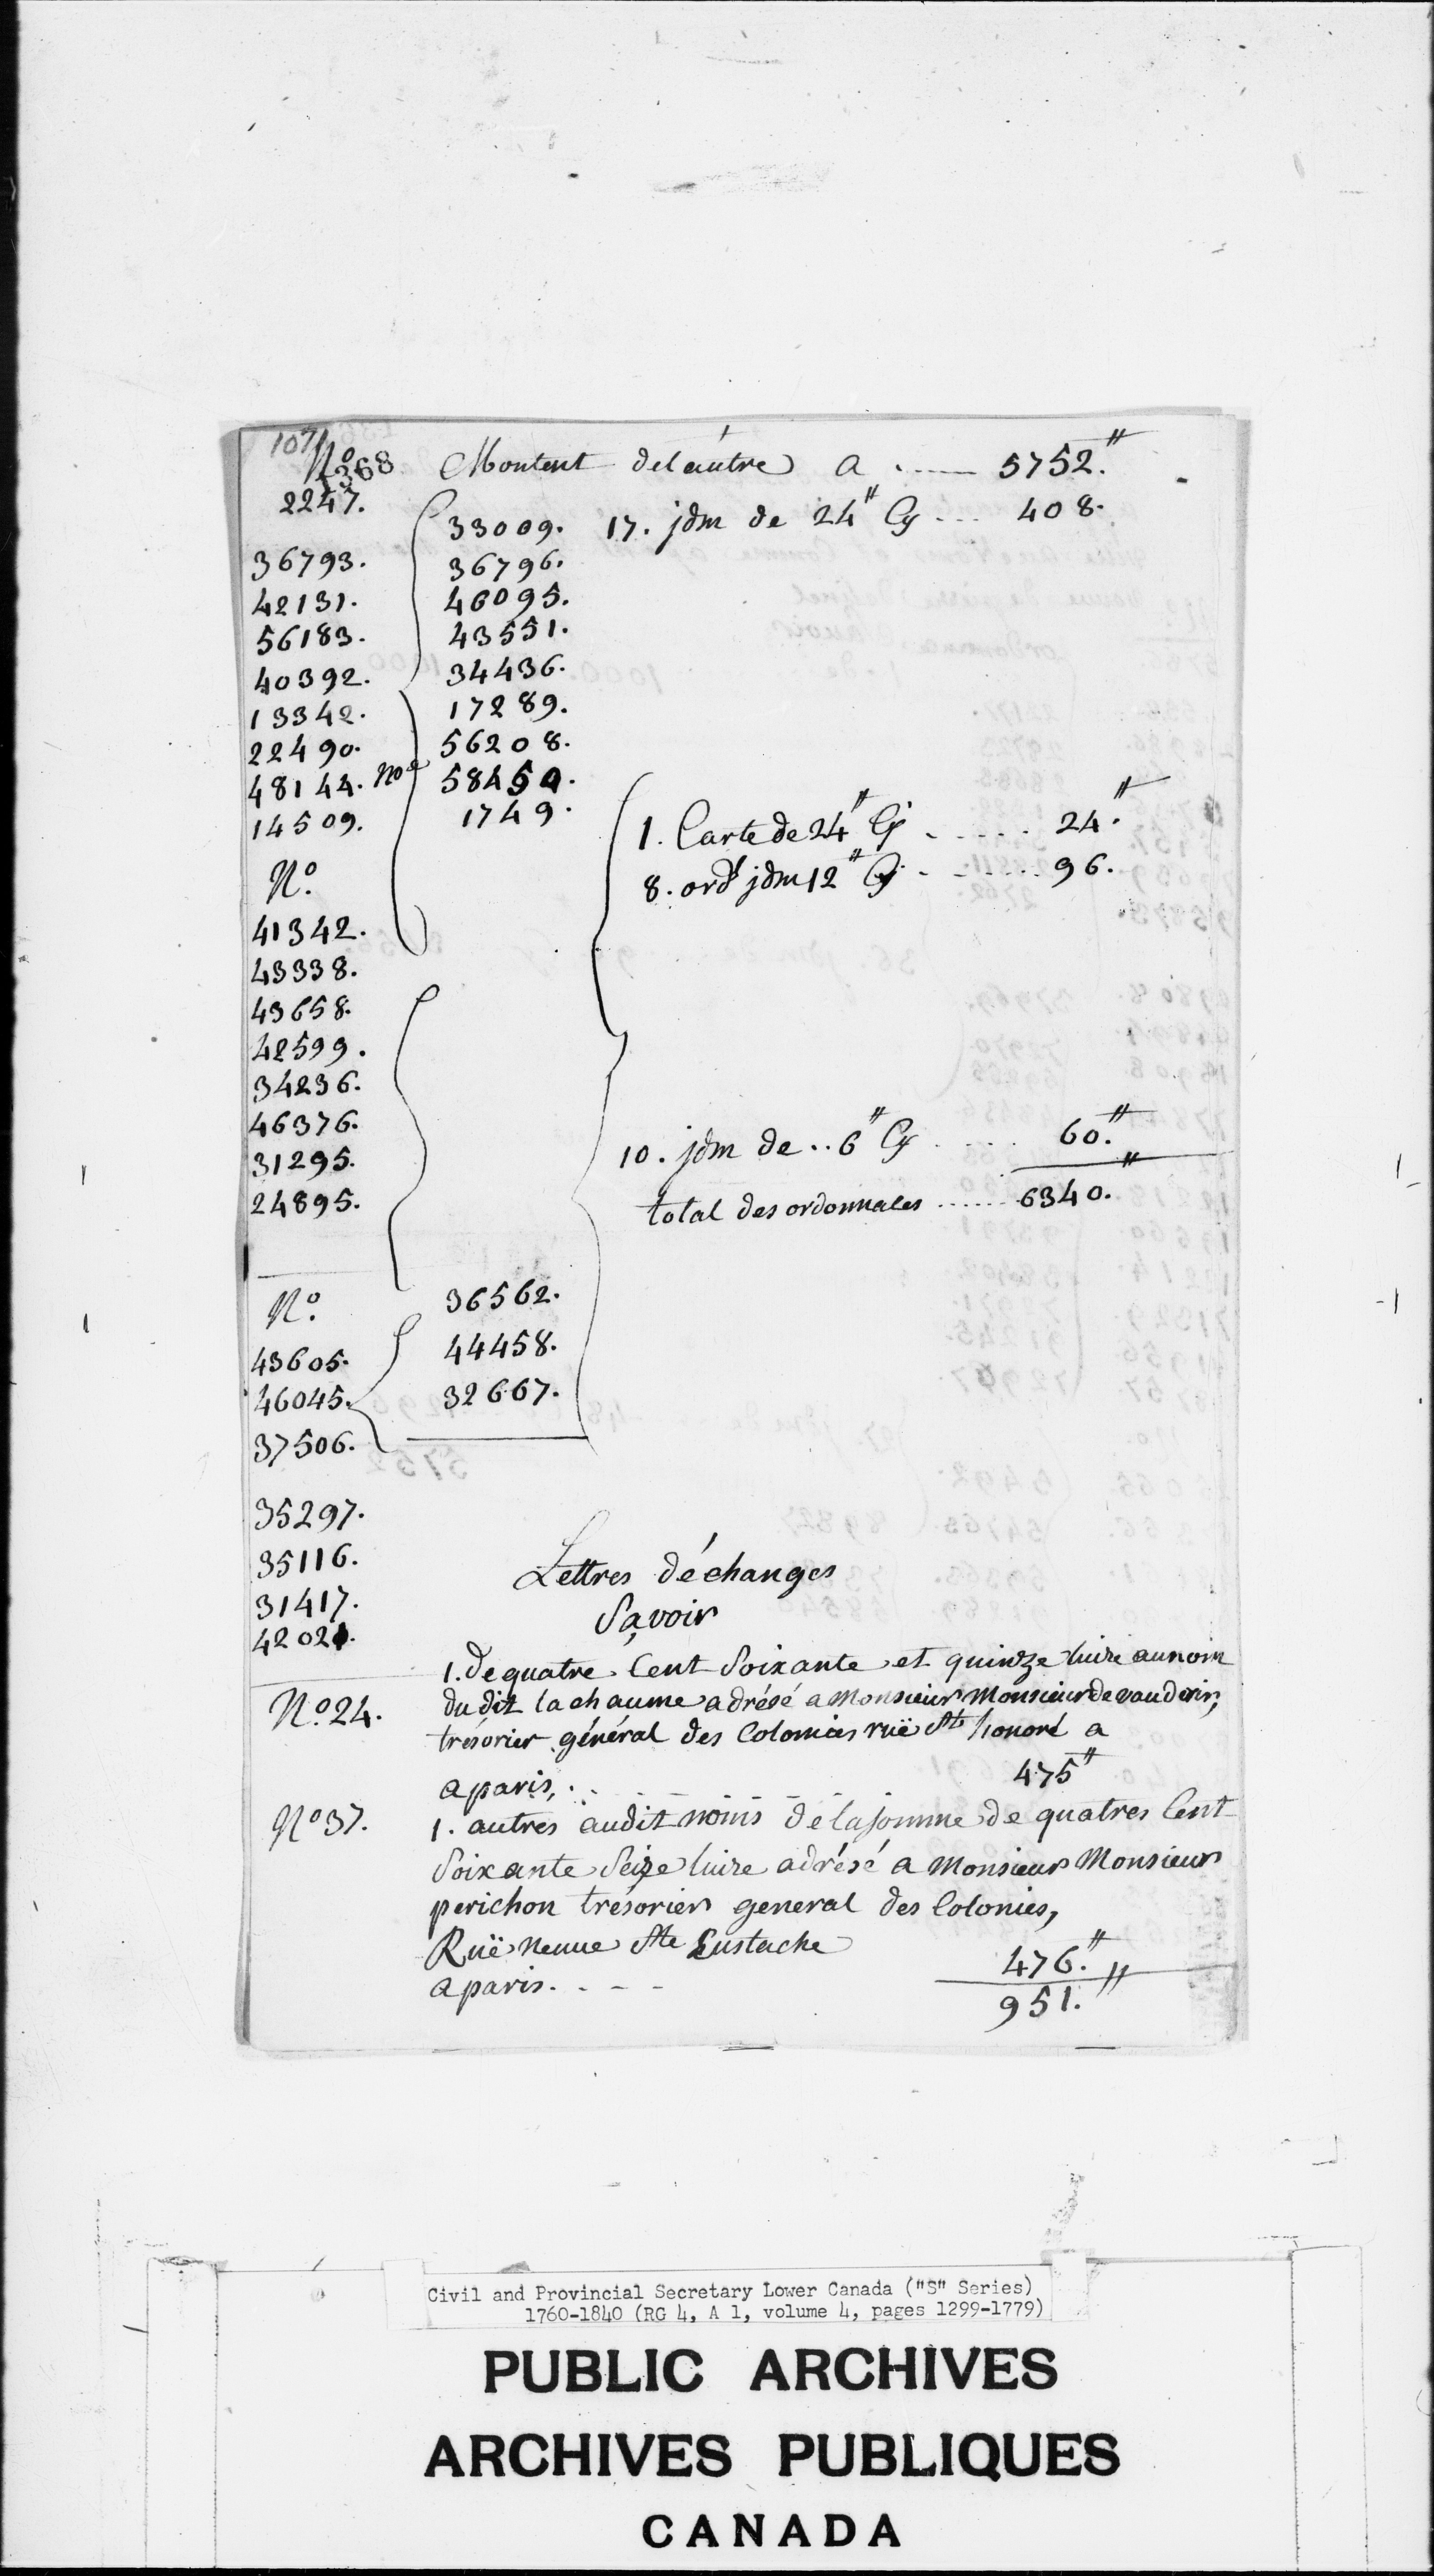 107
1368
Nº Montent delautre a ...... 5752.#
2247. 33009. 17. jdm de 24# Cy ... 408.
36793. 36796.
42131. 46095.
56183. 43551.
40392. 34436.
13342. 17289.
22490. 56208.
48144. No 58450.
14509. 1749. 1. Carte de 24# Cy ...... 24.#
Nº. 8. ord jdm 12# Cy ...... 96.
41342.
43338.
43658.
42599.
34236.
46376.
31295. 10. jdm de .. 6# Cy ..... 60.#
24895. total des ordonnales ...... 6340.#
Nº. 36562.
43605. 44458.
46045. 32667.
37506.
35297.
35116. Lettres d'échanges
31417. Savoir
42021.
1. de quatre Cent Soixante et quinze livre aunom
Nº. 24. du dit lachaume adrésé a Monsieur Monsieur de
trésorier général des Colonies ruë Ste honoré a
a paris, . . . 475#
Nº 37. 1. autres audit noms de la somme de quatres Cent
Soixante Seize livre adrésé a Monsieur Monsieur
perichon trésorier general des Colonies,
Ruë neuve Ste Eustache 476.#
a paris. . - - 951.#
Civil and Provincial Secretary Lower Canada ("S" Series)
1760-1840 (RG 4, A 1, volume 4, pages 1299-1779)
PUBLIC ARCHIVES
ARCHIVES PUBLIQUES
CANADA